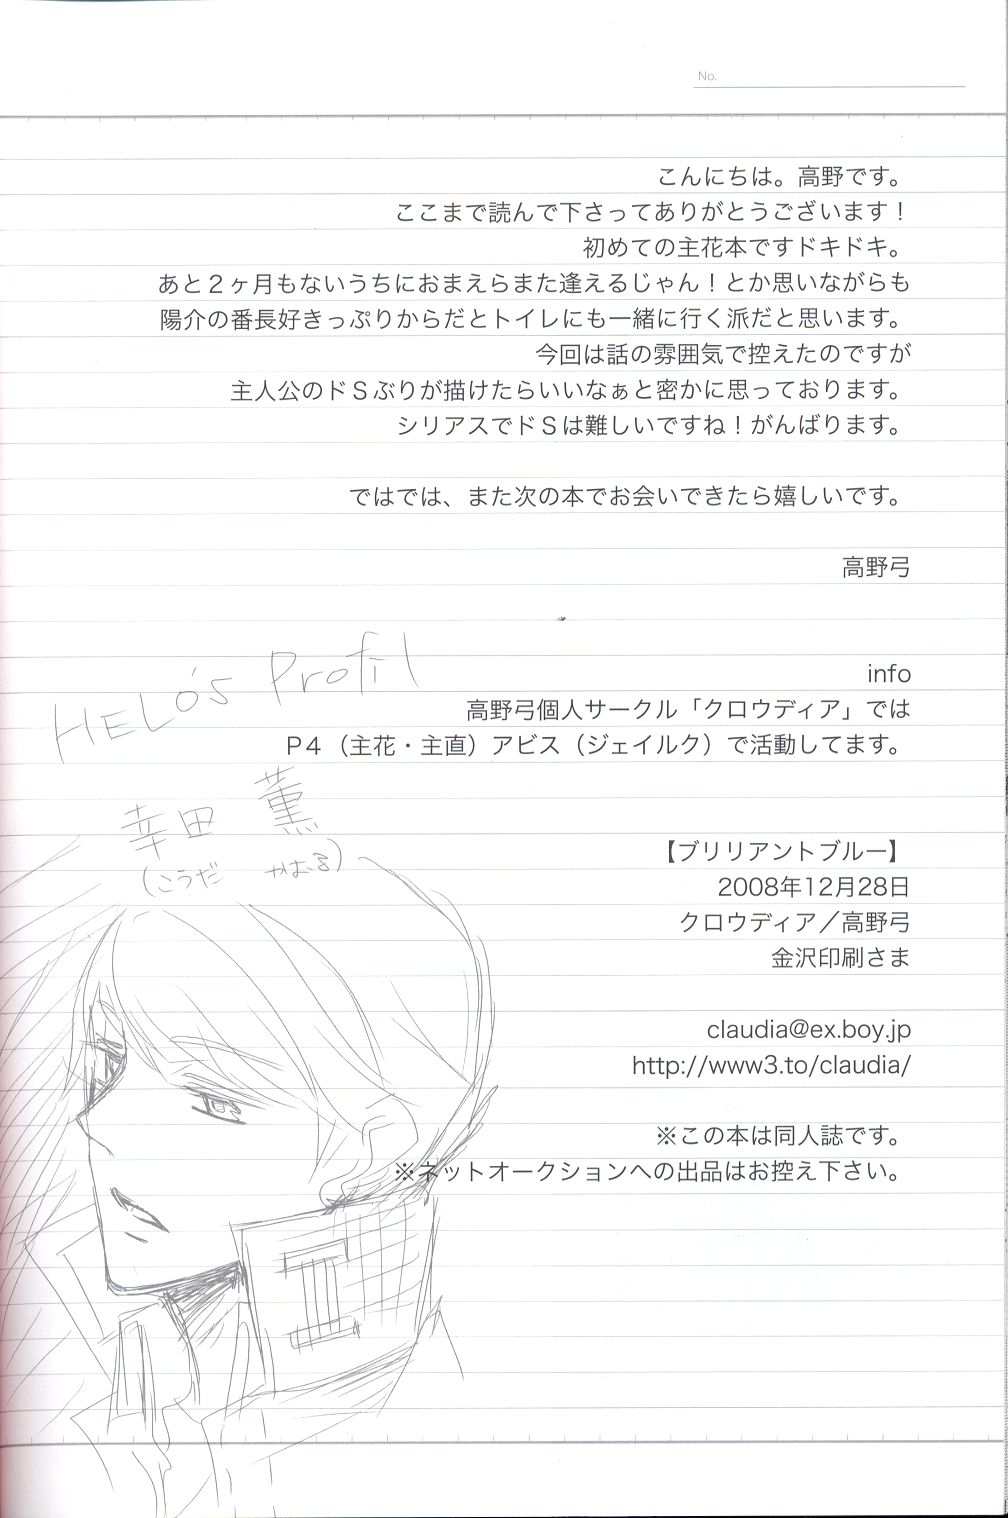 No.
こんにちは。高野です。
ここまで読んで下さってありがとうございます！
初めての主花本ですドキドキ。
あと２ヶ月もないうちにおまえらまた逢えるじゃん！とか思いながらも
陽介の番長好きっぷりからだとトイレにも一緒に行く派だと思います。
今回は話の雰囲気で控えたのですが
主人公のドＳぶりが描けたらいいなぁと密かに思っております。
シリアスでドＳは難しいですね！がんばります。
ではでは、また次の本でお会いできたら嬉しいです。
高野弓
info
高野弓個人サークル「クロウディア」では
P４（主花・主直）アビス（ジェイルク）で活動してます。
HELO's Profil
幸田 薫
（こうだ かおる）
【ブリリアントブルー】
2008年12月28日
クロウディア／高野弓
金沢印刷さま
claudia@ex.boy.jp
http://www3.to/claudia/
※この本は同人誌です。
※ネットオークションへの出品はお控え下さい。